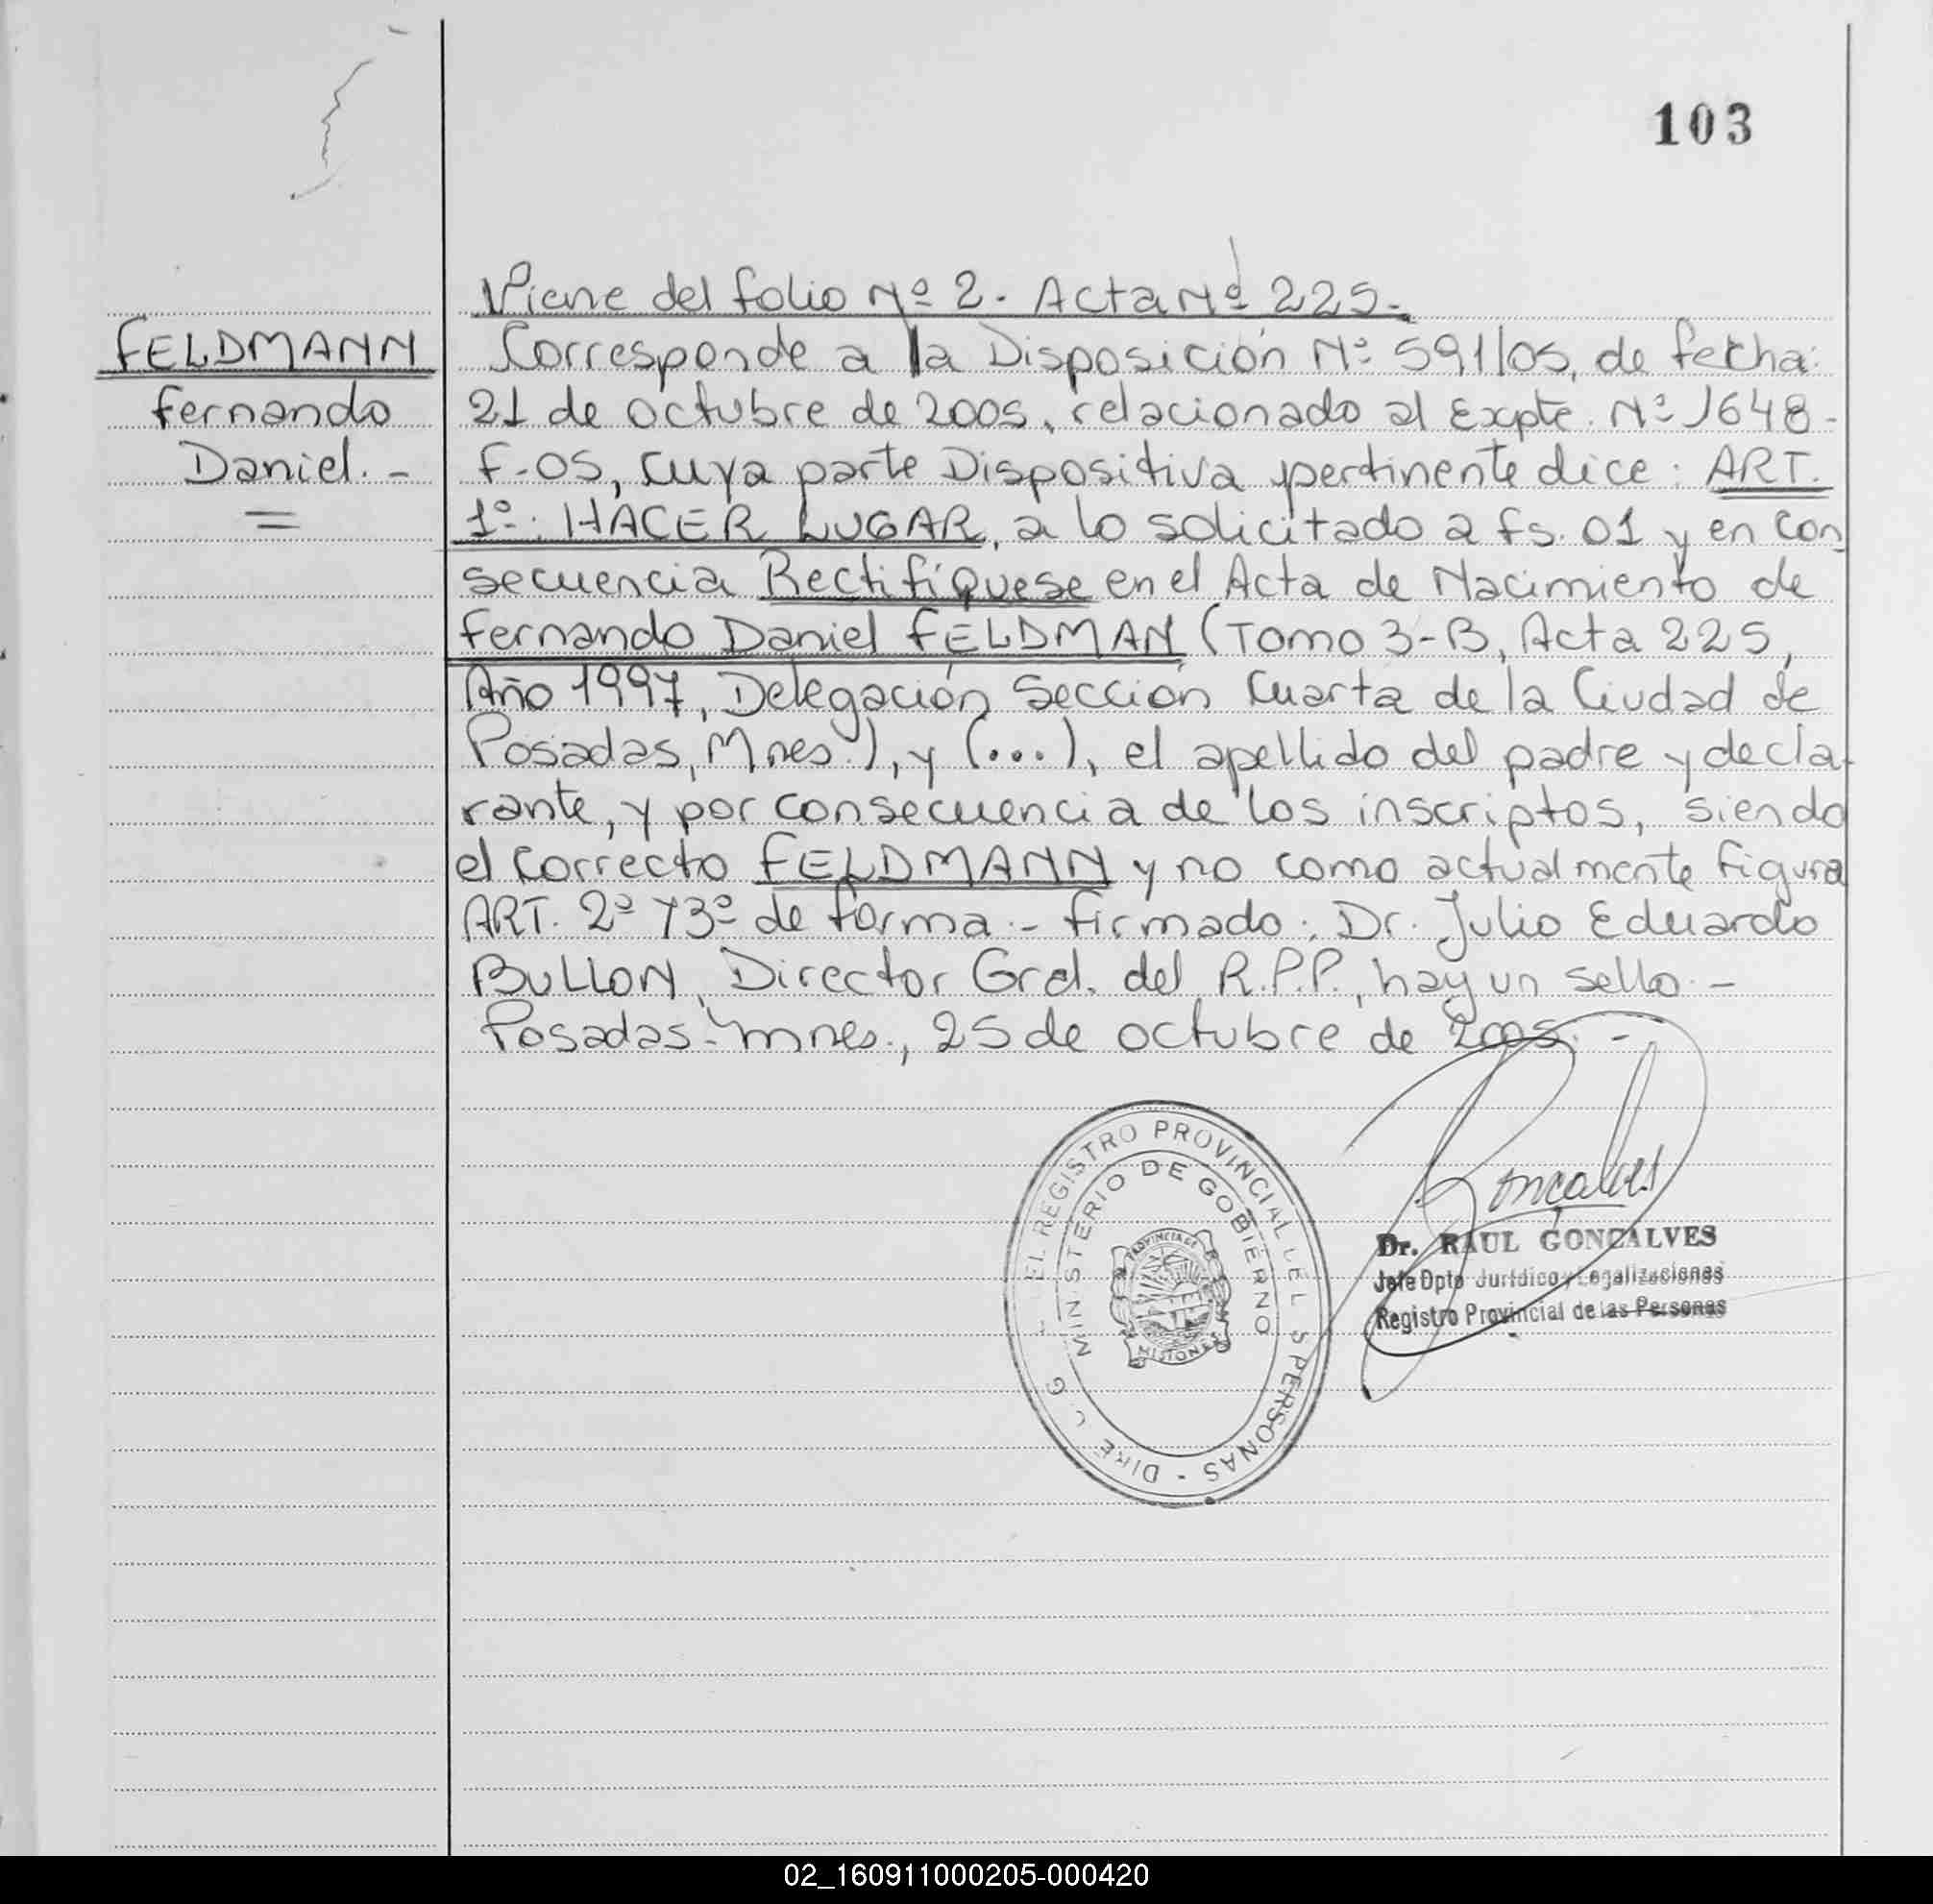 103
Viene del folio Nº 2. Acta Nº 225.-
FELDMANN
Fernando
Daniel.-
Corresponde a la Disposición Nº 591/05, de fecha:
21 de octubre de 2005, relacionado al Expte. Nº 1648-
F-05, cuya parte Dispositiva pertinente dice: ART.
1º: HACER LUGAR, a lo solicitado a fs. 01 y en con
secuencia Rectifíquese en el Acta de Nacimiento de
Fernando Daniel FELDMAN (Tomo 3-B, Acta 225,
Año 1997, Delegación Sección Cuarta de la Ciudad de
Posadas, Mnes.), y (...), el apellido del padre y decla-
rante, y por consecuencia de los inscriptos, siendo
el correcto FELDMANN y no como actualmente figura
ART. 2º y 3º de forma.- Firmado: Dr. Julio Eduardo
BULLON, Director Gral. del R.P.P., hay un sello.-
Posadas-Mnes., 25 de octubre de 2005.-
EL REGISTRO PROVINCIAL DE L S PERSONAS - DIRE
MINISTERIO DE GOBIERNO
PROVINCIA DE
MISIONES
Goncalves
Dr. RAUL GONCALVES
Jefe Dpto Jurídico y Legalizaciones
Registro Provincial de las Personas
02_160911000205-000420